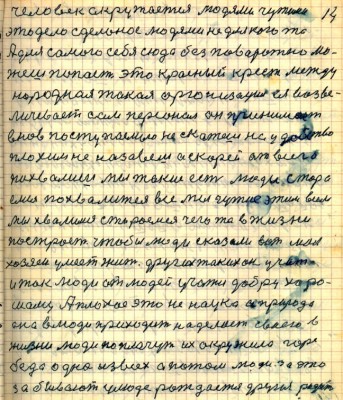 человек скружается людями чужыми 14
это дело сделоное людями не для кого то
А для самого себя сюда без поваротно мо-
жеш попаст это Красный крест между
народная такая организация ея возве-
личивает сам персонал он принимает
внов поступаемого не скажеш не удобство
плохим не назавеш а скорей от всего
похвалиш мы такие ест люди, стара
емы похвалится все мы этим всем
мы хвалимся стораемся чего та в жизни
построит чтобы люди сказали вот
хозяен умеет жит. других таких он учит
и так люди от людей учатся добру харо-
шаму. А плохае это не наука а природа
она в люди приходит наделает своего в
жизни люди поплачут их окружило горе
беда одна из всех а потом люди за это
забывают у люде рождается другия родит